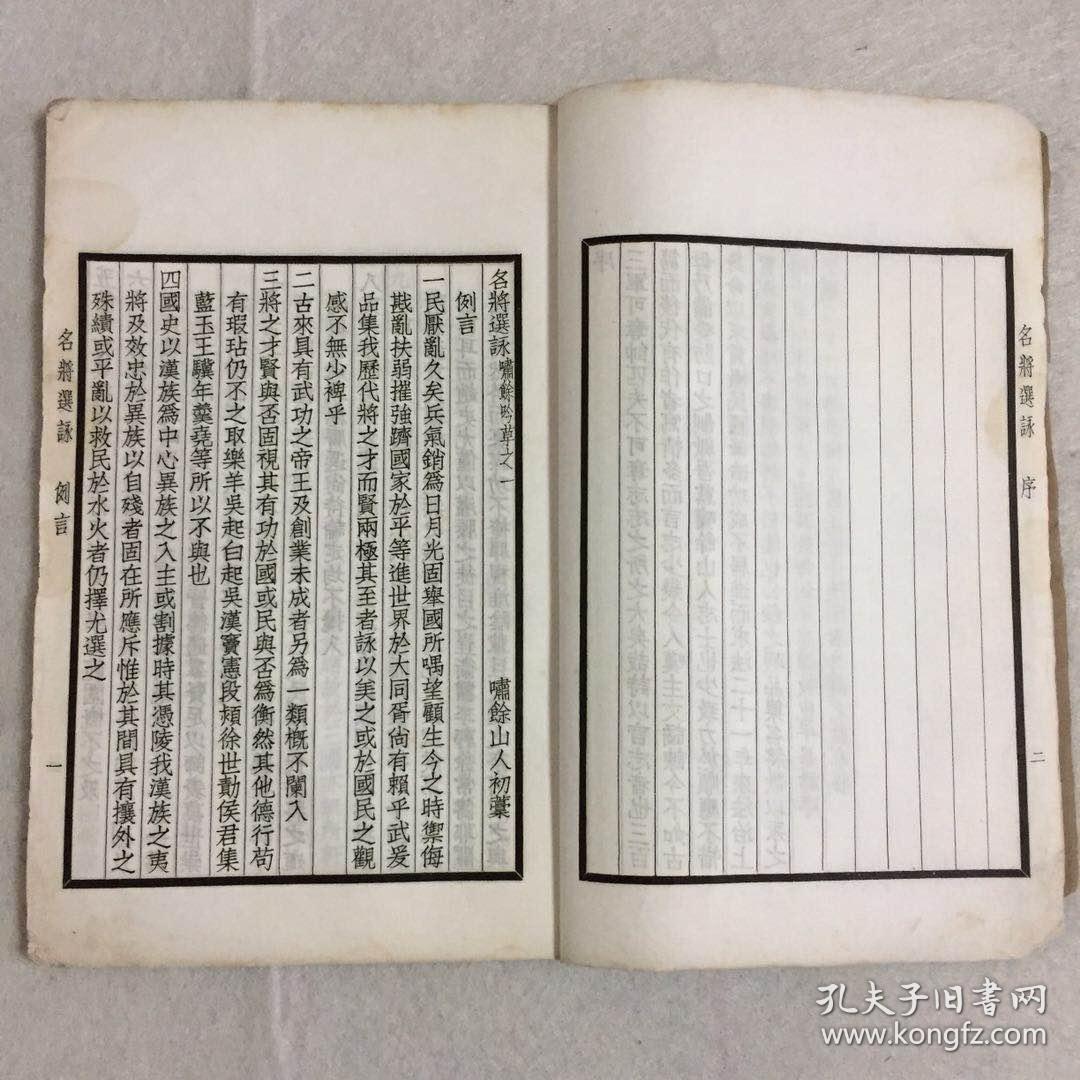 名將選詠 序
二
名將選詠 嘯餘吟草之一 嘯餘山人初藁
例言
一民厭亂久矣兵氣銷爲日月光固舉國所喁望顧生今之時禦侮
戡亂扶弱摧強躋國家於平等進世界於大同胥尙有賴乎武爰
品集我歷代將之才而賢兩極其至者詠以美之或於國民之觀
感不無少裨乎
二古來具有武功之帝王及創業未成者另爲一類概不闌入
三將之才賢與否固視其有功於國或民與否爲衡然其他德行苟
有瑕玷仍不之取樂羊吳起白起吳漢竇憲段熲徐世勣侯君集
藍玉王驥年羹堯等所以不與也
四國史以漢族爲中心異族之入主或割據時其憑陵我漢族之夷
將及效忠於異族以自殘者固在所應斥惟於其間具有攘外之
殊績或平亂以救民於水火者仍擇尤選之
名將選詠 例言
一
孔夫子旧书网
www.kongfz.com